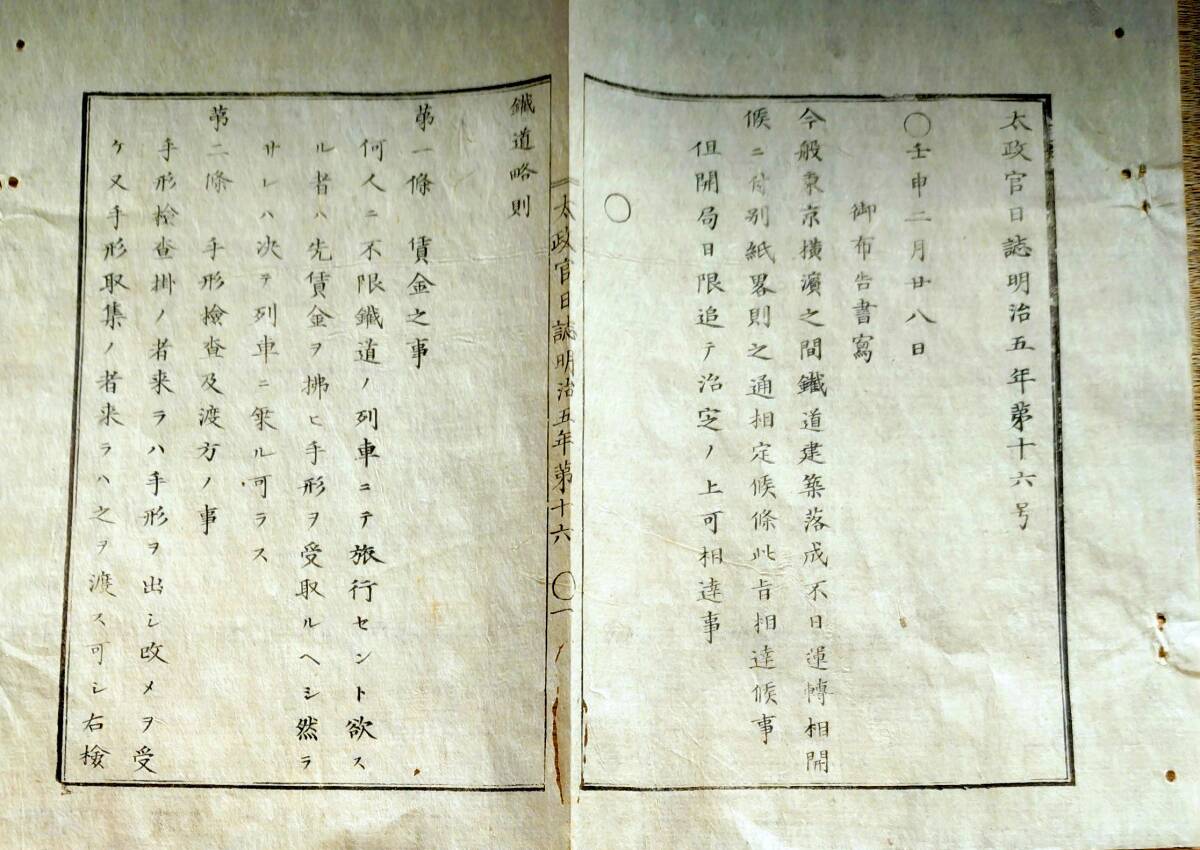 太政官日誌明治五年第十六号
〇壬申二月廿八日
御布告書寫
今般東京横濱之間鐵道建築落成不日運轉相開
候ニ付別紙畧則之通相定候條此旨相達候事
但開局日限追テ治定ノ上可相達事
〇
太政官日誌明治五年第十六 〇一
鐵道略則
第一條 賃金之事
何人ニ不限鐵道ノ列車ニテ旅行セント欲ス
ル者ハ先賃金ヲ拂ヒ手形ヲ受取ルヘシ然ラ
サレハ决テ列車ニ乗ル可ラス
第二條 手形檢查及渡方ノ事
手形檢查掛ノ者来ラハ手形ヲ出シ改メヲ受
ケ又手形取集ノ者来ラハ之ヲ渡ス可シ右檢